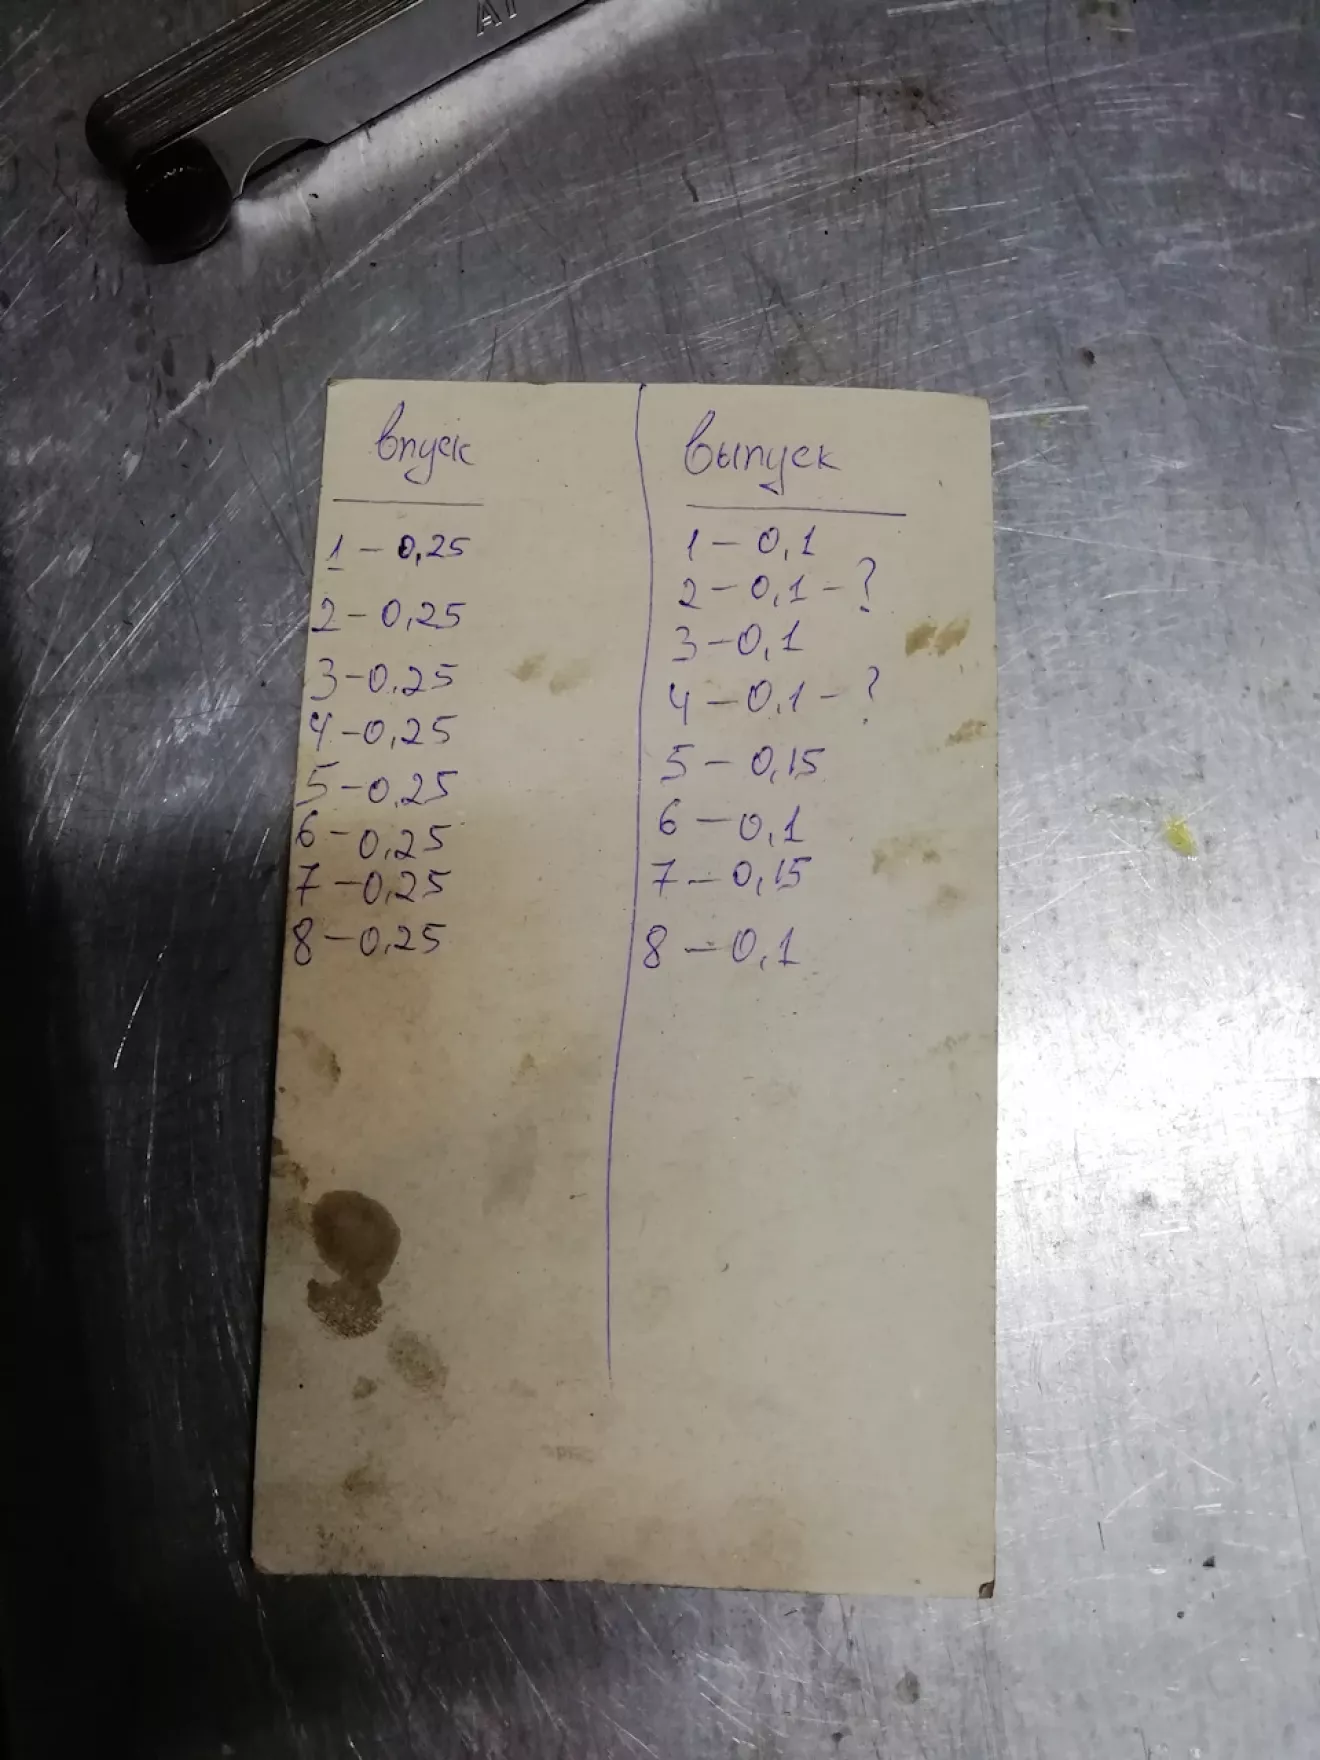 впуск
1 – 0,25
2 – 0,25
3 – 0,25
4 – 0,25
5 – 0,25
6 – 0,25
7 – 0,25
8 – 0,25
выпуск
1 – 0,1
2 – 0,1 – ?
3 – 0,1
4 – 0,1 – ?
5 – 0,15
6 – 0,1
7 – 0,15
8 – 0,1